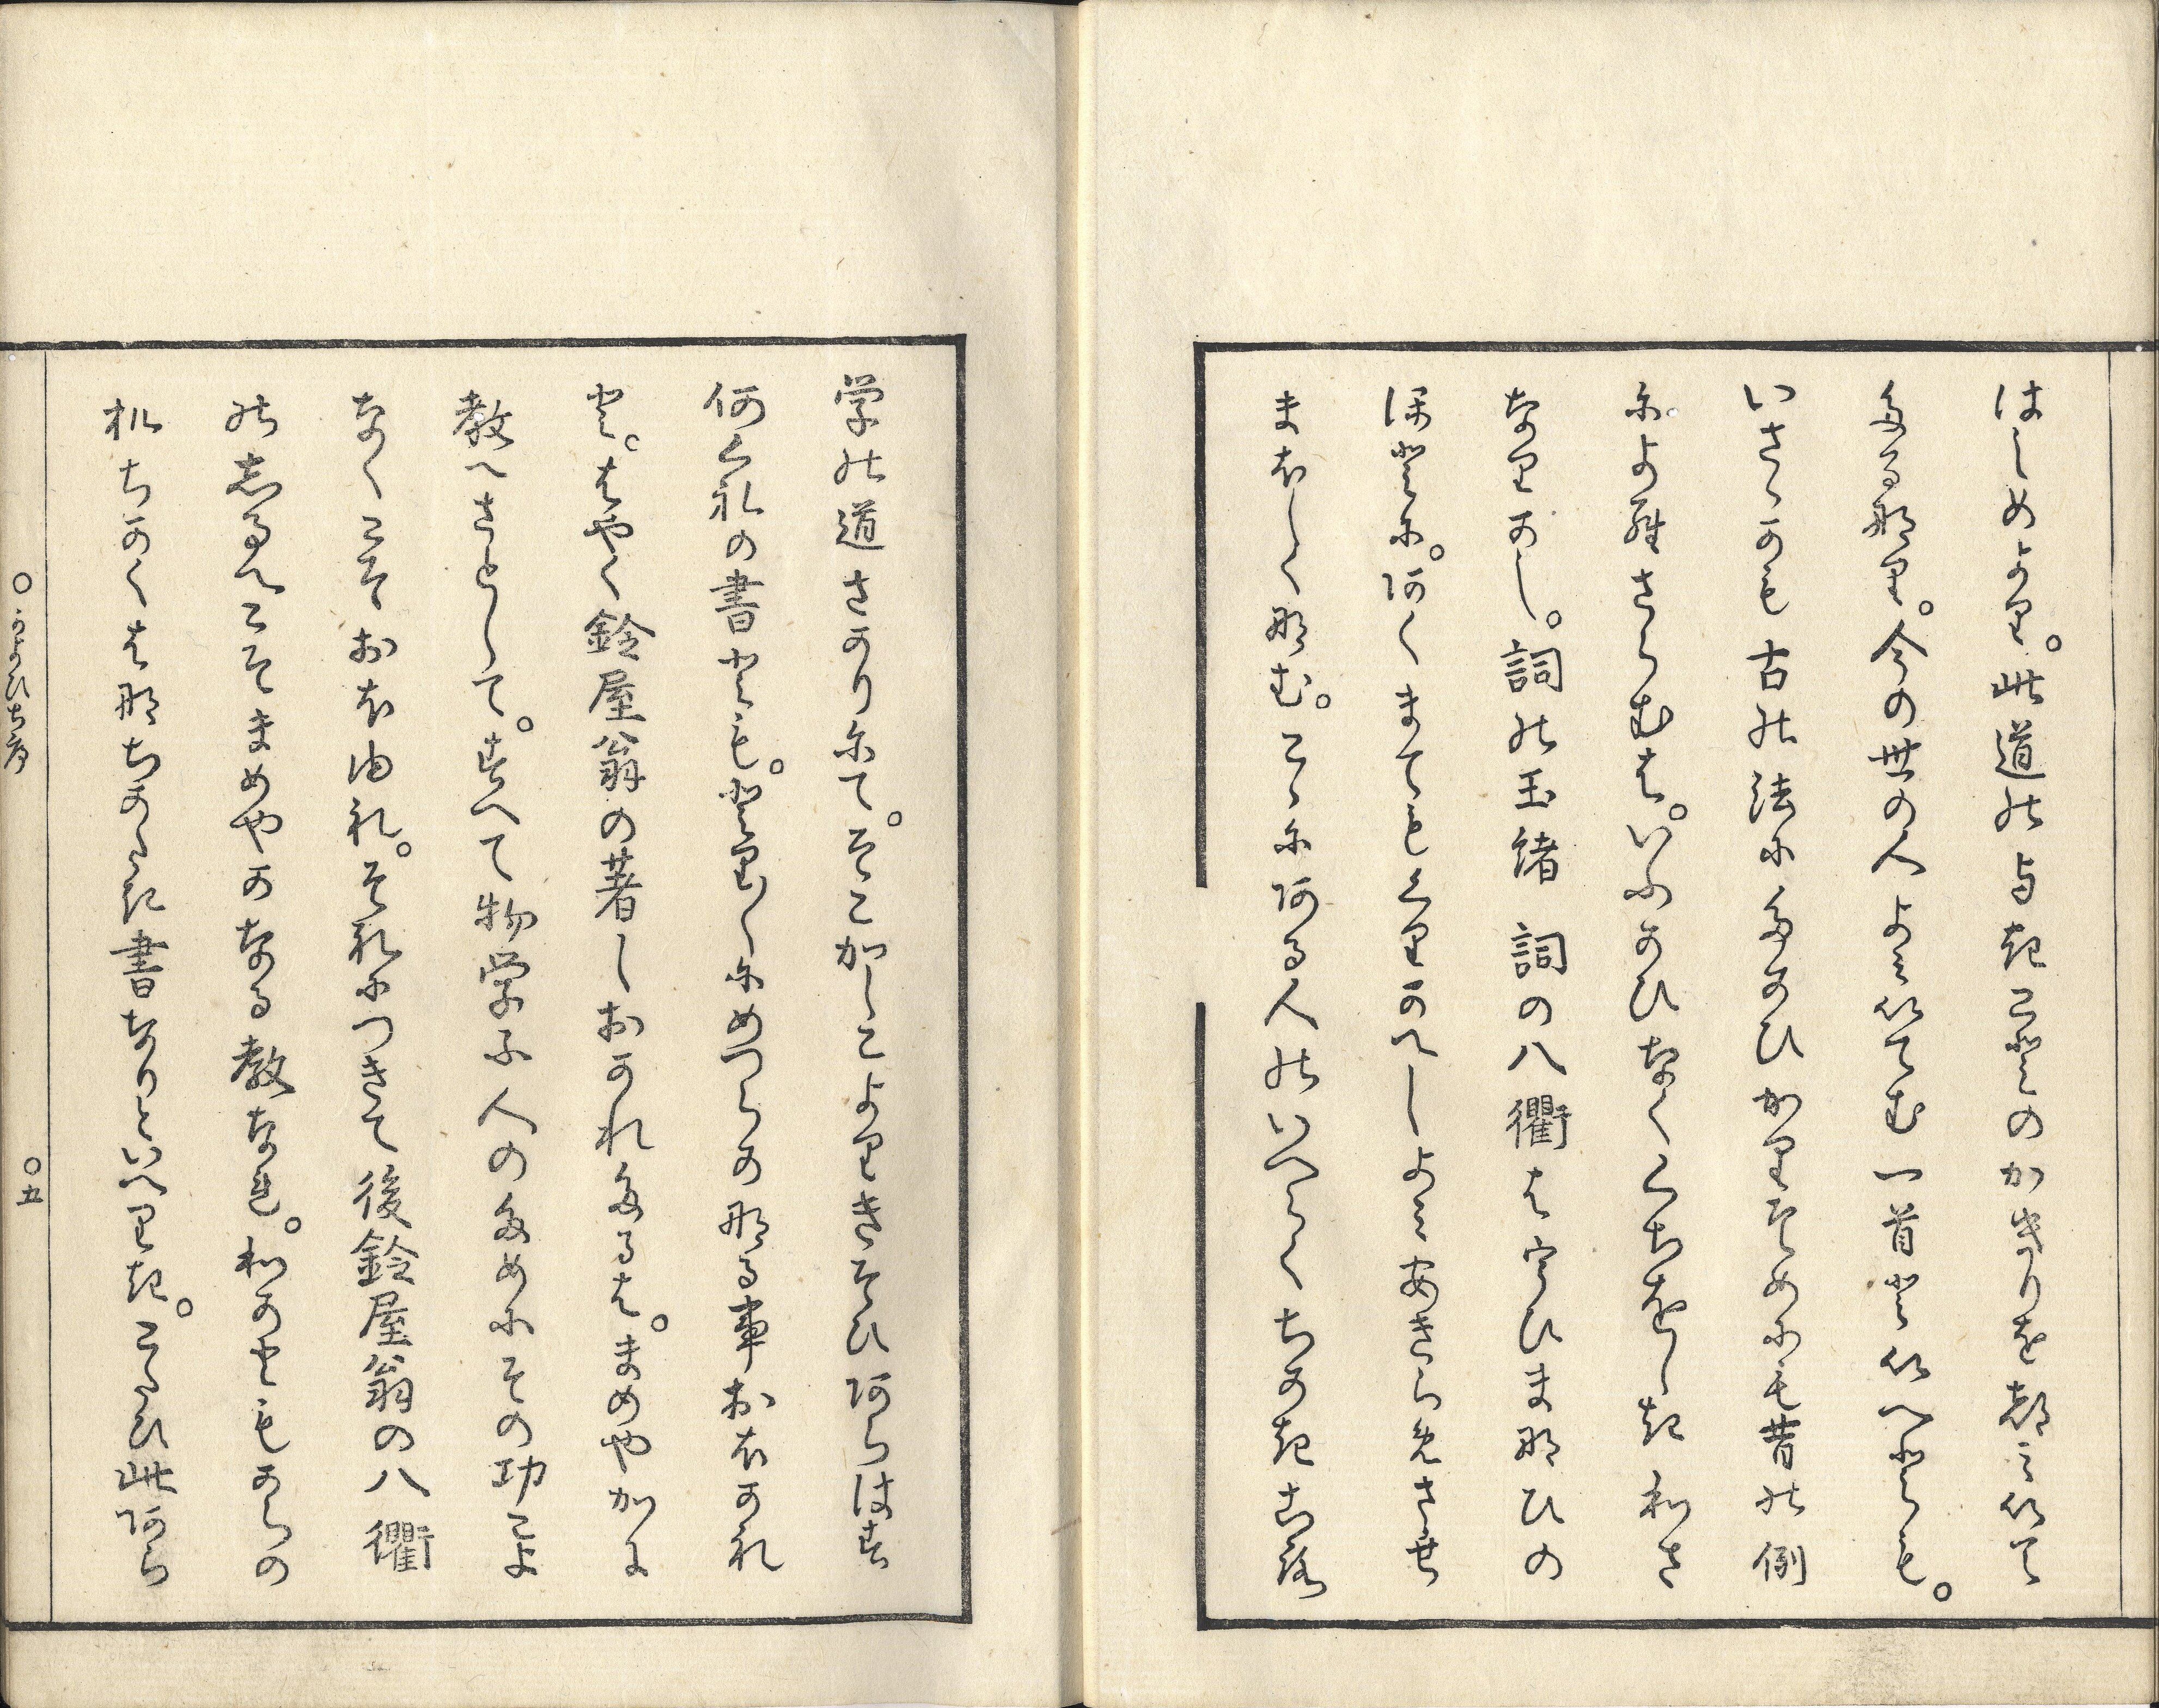 はしめより。此道のよきことのかきりを都み似て
たる那り。今の世の人よみ似てむ一首と似へとも。
いさゝかも古の法にたかひかりそめにも昔の例
によらさらむは。いふかひなくくちをしきわさ
なりかし。詞の玉緒詞の八衢はうひまなひの
ほとに。あくまてもくりかへしよみあきらめさせ
まほしくなむ。こゝにある人のいへらくちかきころ
学の道さかりにて。そこかしこよりきそひあらはす
何くれの書とも。とり〳〵にめつらかなる事おほかれ
と。はやく鈴屋翁の著しおかれたるは。まめやかに
教へさとして。すへて物学ふ人のためにその功こよ
なくこそおほゆれ。それにつきて後鈴屋翁の八衢
のしるへこそまめやかなる教なれ。わかともからの
机ちかくはなちかたき書なりといへりき。こたひ此あら
○かよひち序
○五